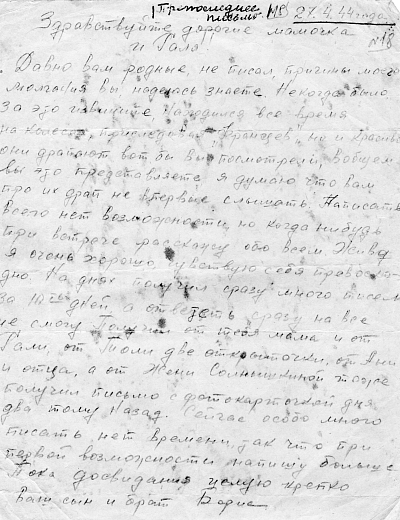 Предпоследнее
письмо. 27.4.44 года
№18
Здравствуйте, дорогие мамочка
и Галя!
Давно вам родные, не писал, причины моего
молчания вы, надеюсь знаете. Некогда было
За это извините. Находился все время
на колесах, преследовал "фрицев", но и красиво
они драпают вот бы вы посмотрели, вобщем
вы это представляете. Я думаю что вам
про их драп не впервые слышать. Написать
всего нет возможности, но когда нибудь
при встрече расскажу обо всем. Живу
я очень хорошо, чувствую себя превосхо-
дно. На днях получил сразу много писем
за дней, а ответить сразу на все
не смогу. Получил от тебя мама и от
Гали, от Толи две открыточки, от Ани
и отца, а от Жени Солнышкиной тоже
получил письмо с фотокарточкой дня
два тому назад. Сейчас особо много
писать нет времени, так что при
первой возможности напишу больше
Пока досвидания целую крепко
Ваш сын и брат Борис